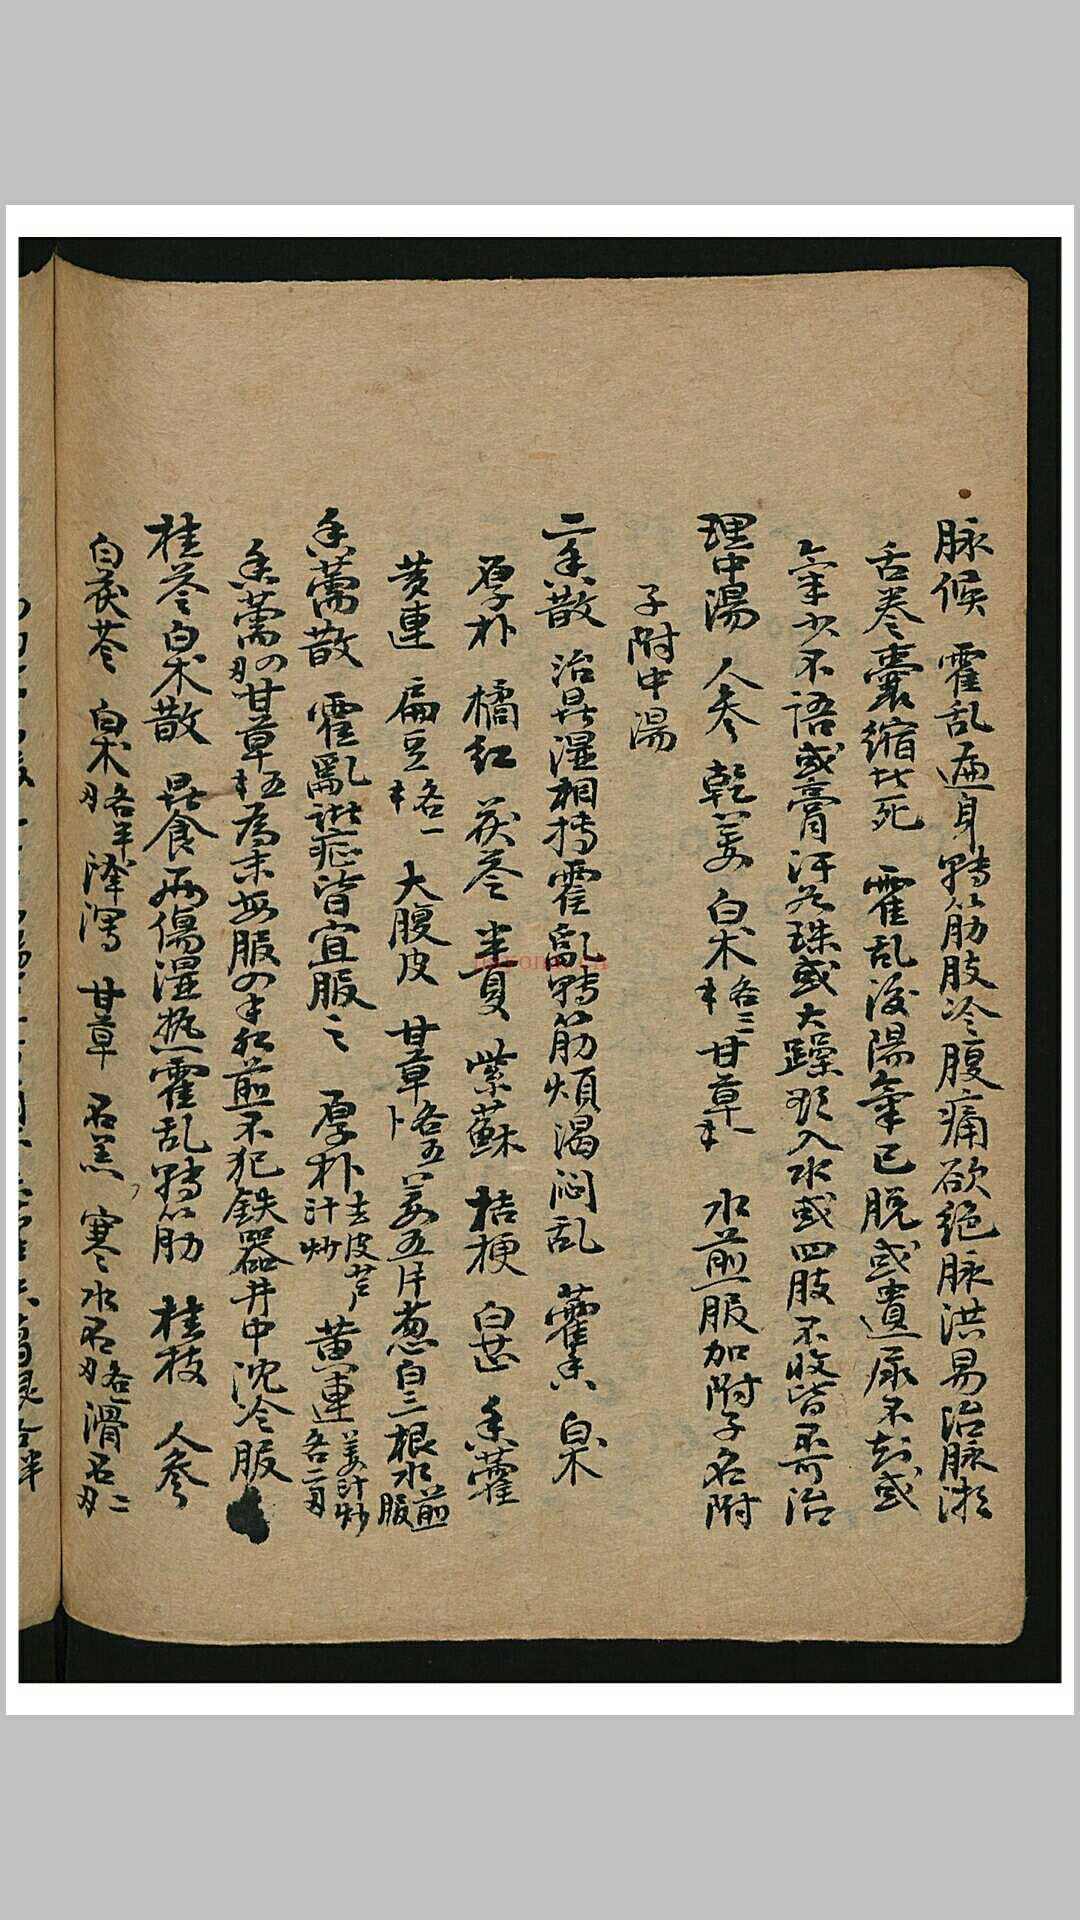 脉候 霍乱遍身轉筋肢冷腹痛欲絶脉洪易治脉微
舌卷囊縮者死 霍乱後陽氣已脱或遺尿不知或
氣少不語或膏汗如珠或大躁欲入水或四肢不收皆不可治
理中湯 人参 乾姜 白术各二 甘草 水煎服加附子名附
子附中湯
二香散 治暑湿相搏霍亂轉筋煩渴闷乱 藿香 白术
厚朴 橘红 茯苓 半夏 紫蘇 桔梗 白芷 香薷
黄連 扁豆各一 大腹皮 甘草各五 姜五片葱白三根水煎服
香薷散 霍亂諸症皆宜服之 厚朴去皮姜汁炒 黄連姜汁炒各二
香薷四 甘草五 為末每服四 水煎不犯鉄器井中沈冷服
桂苓白术散 暑食两傷湿热霍乱轉筋 桂枝 人參
白茯苓 白术各半 泽泻 甘草 石羔 寒水石各一 滑石二